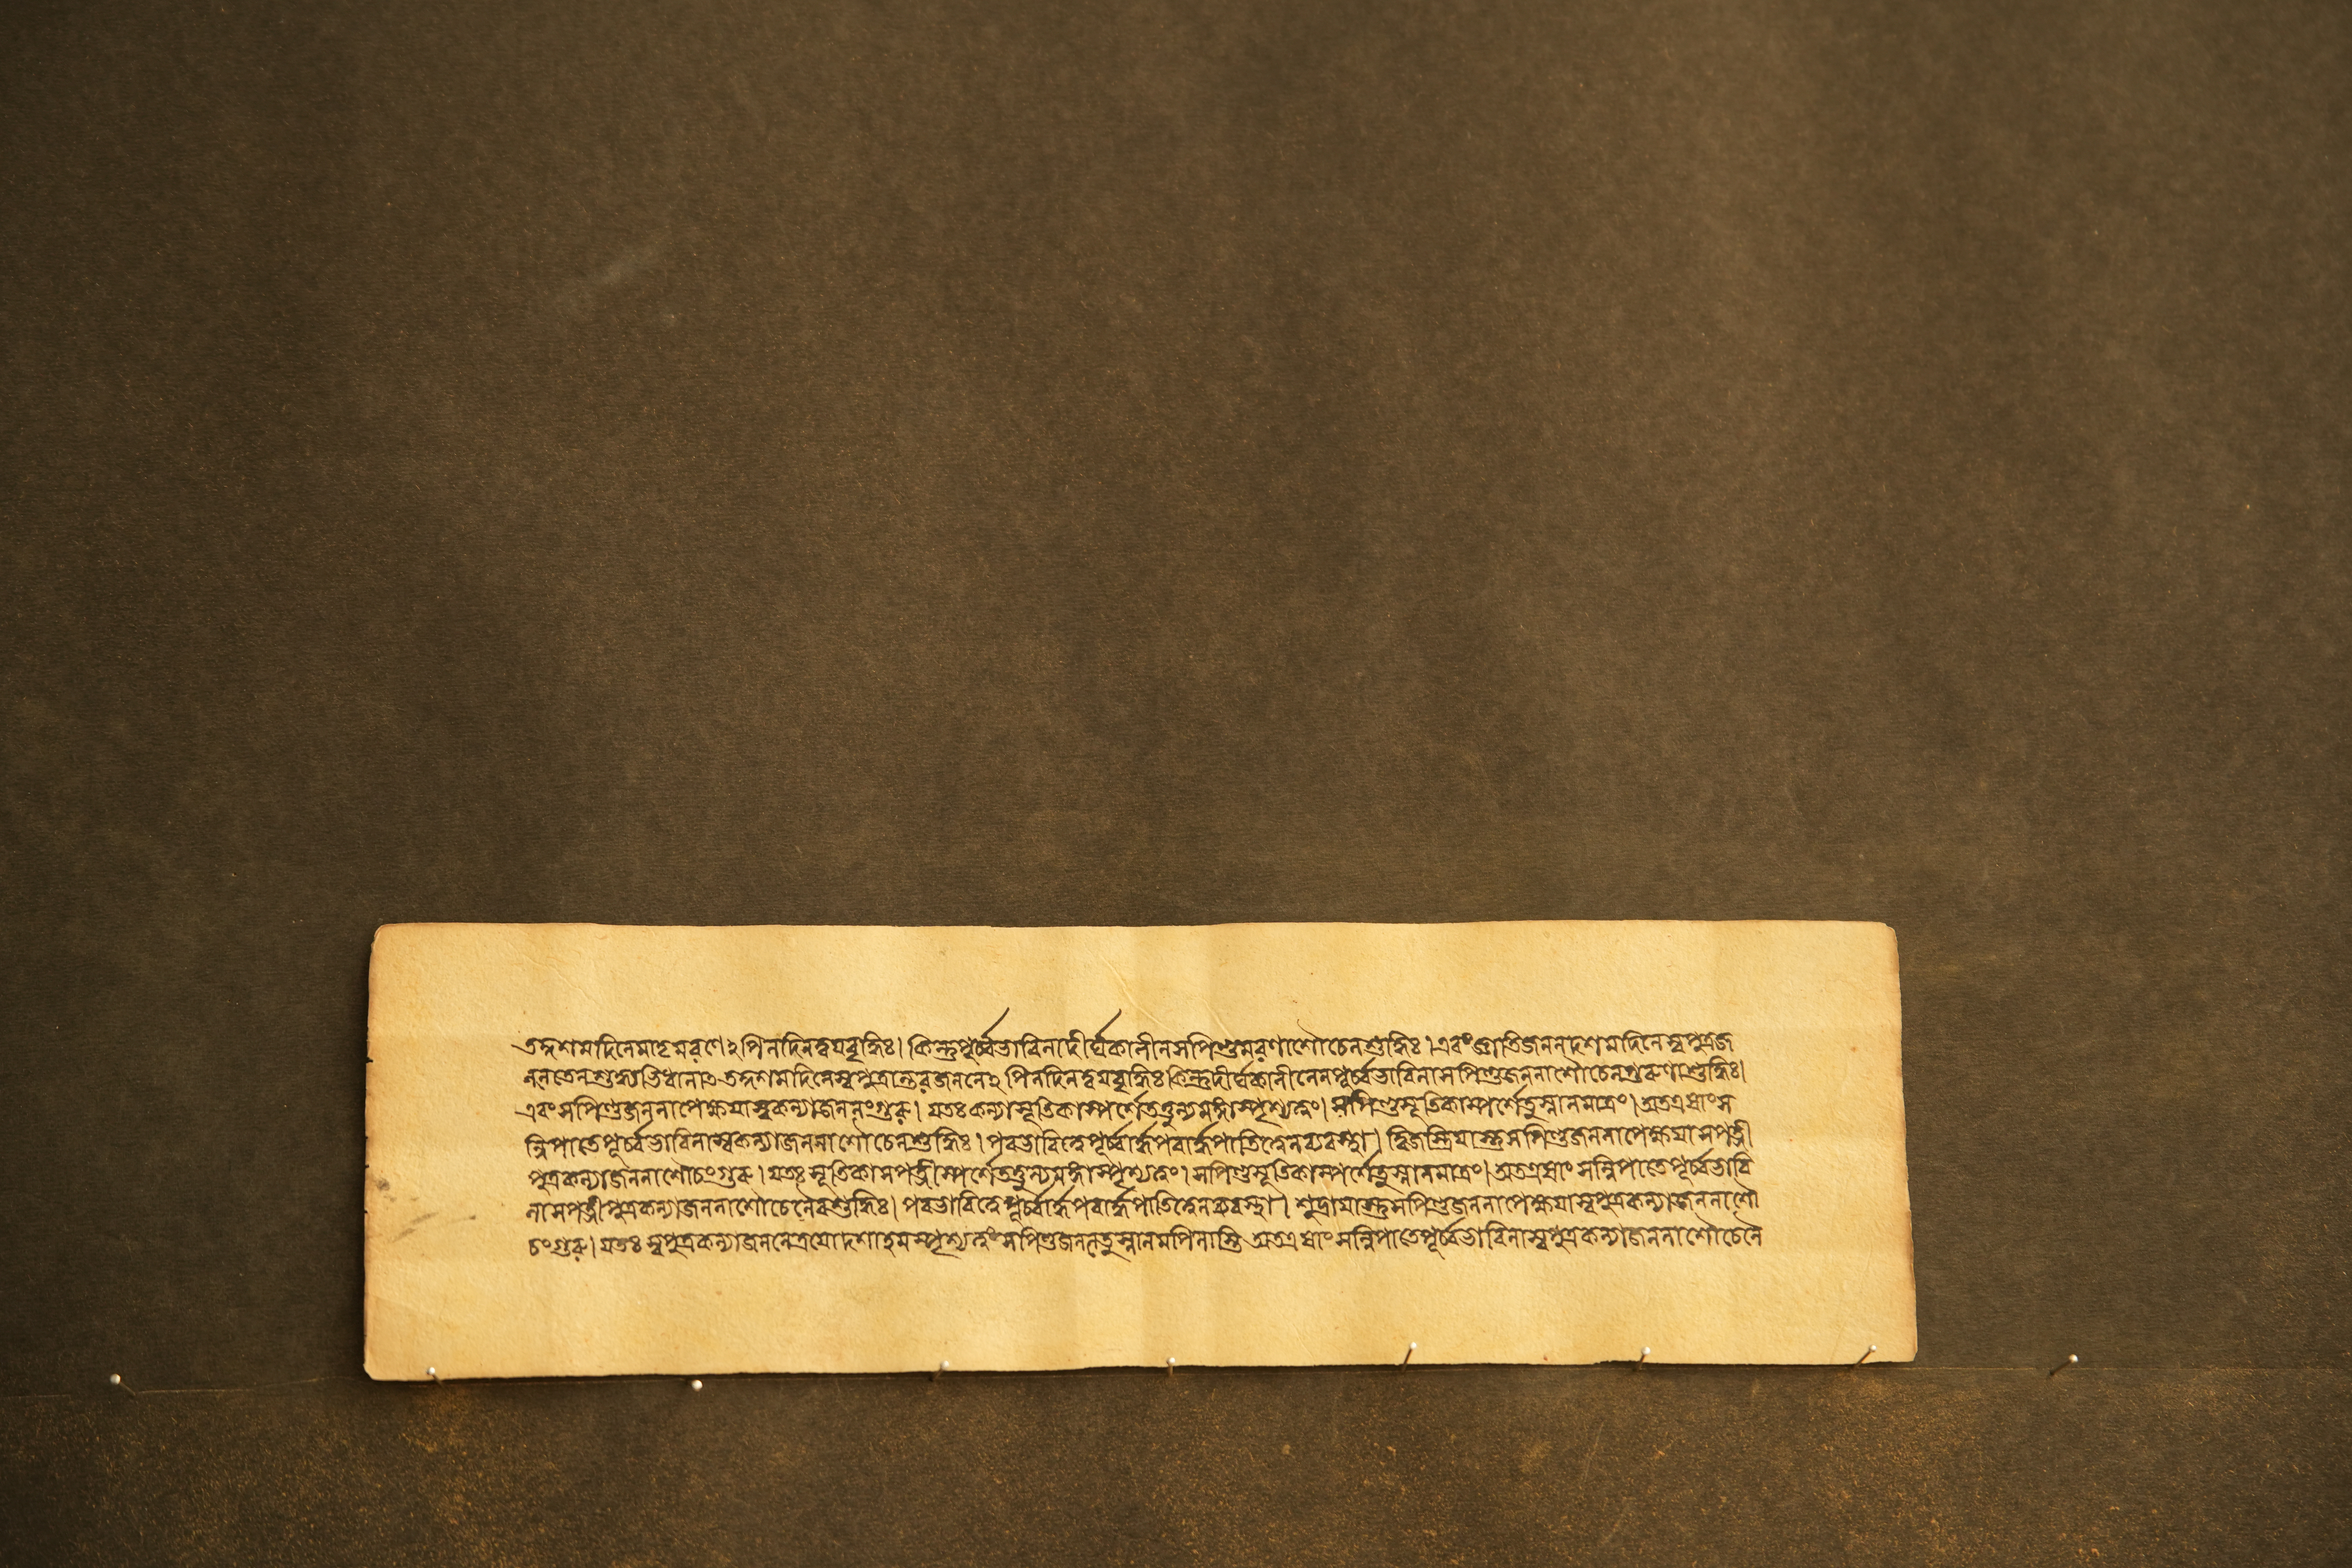 তদ্দশমদিনেমাতৃমরণে২পিনদিনদ্বয়বৃদ্ধিঃ। কিন্তুপূর্ব্বভাবিনাদীর্ঘকালীনসপিণ্ডমরণাশৌচেনশুদ্ধিঃ। এবংজ্ঞাতিজননদশমদিনেস্বপুত্রজ
ননতেনশুদ্ধ্যতিধানাৎতদ্দশমদিনেস্বপুত্রান্তরজননে২পিনদিনদ্বয়বৃদ্ধিঃকিন্তুদীর্ঘকালীনেনপূর্ব্বভাবিনাসপিণ্ডজননাশৌচেনগুরুণাশুদ্ধিঃ।
এবংসপিণ্ডজননাপেক্ষয়াস্বকন্যাজননংগুরু। যতঃকন্যাসূতিকাস্পর্শেতত্তুল্যমঙ্গাস্পৃশ্যত্বং। সপিণ্ডসূতিকাস্পর্শেতুস্নানমাত্রং। অতএষাংস
ন্নিপাতেপূর্ব্বভাবিনাস্বকন্যাজননাশৌচেনশুদ্ধিঃ। পরভাবিত্বেপূর্ব্বার্দ্ধপরার্দ্ধপাতিত্বেনব্যবস্থা। দ্বিজস্ত্রিয়াস্তুসপিণ্ডজননাপেক্ষয়াসপত্নী
পুত্রকন্যাজননাশৌচংগুরু। যতঃসূতিকাসপত্নীস্পর্শেতত্তুল্যমঙ্গাস্পৃশ্যত্বং। সপিণ্ডসূতিকাস্পর্শেতুস্নানমাত্রং। অতএষাংসন্নিপাতেপূর্ব্বভাবি
নাসপত্নীপুত্রকন্যাজননাশৌচেনৈবশুদ্ধিঃ। পরভাবিত্বেপূর্ব্বার্দ্ধপরার্দ্ধপাতিত্বেনব্যবস্থা। শূদ্রায়াস্তুসপিণ্ডজননাপেক্ষয়াস্বপুত্রকন্যাজননাশৌ
চংগুরু। যতঃস্বপুত্রকন্যাজননেত্রয়োদশাহমস্পৃশ্যত্বংসপিণ্ডজননেতুস্নানমপিনাস্তি অতএষাংসন্নিপাতেপূর্ব্বভাবিনাস্বপুত্রকন্যাজননাশৌচেনৈ